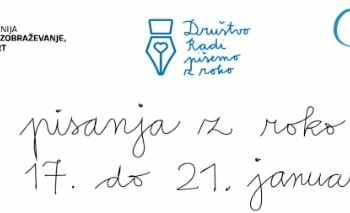 NIJA
ZOBRAŽEVANJE,
RT
Društvo
Radi
pišemo
z roko
pisanja z roko
17. do 21. janua